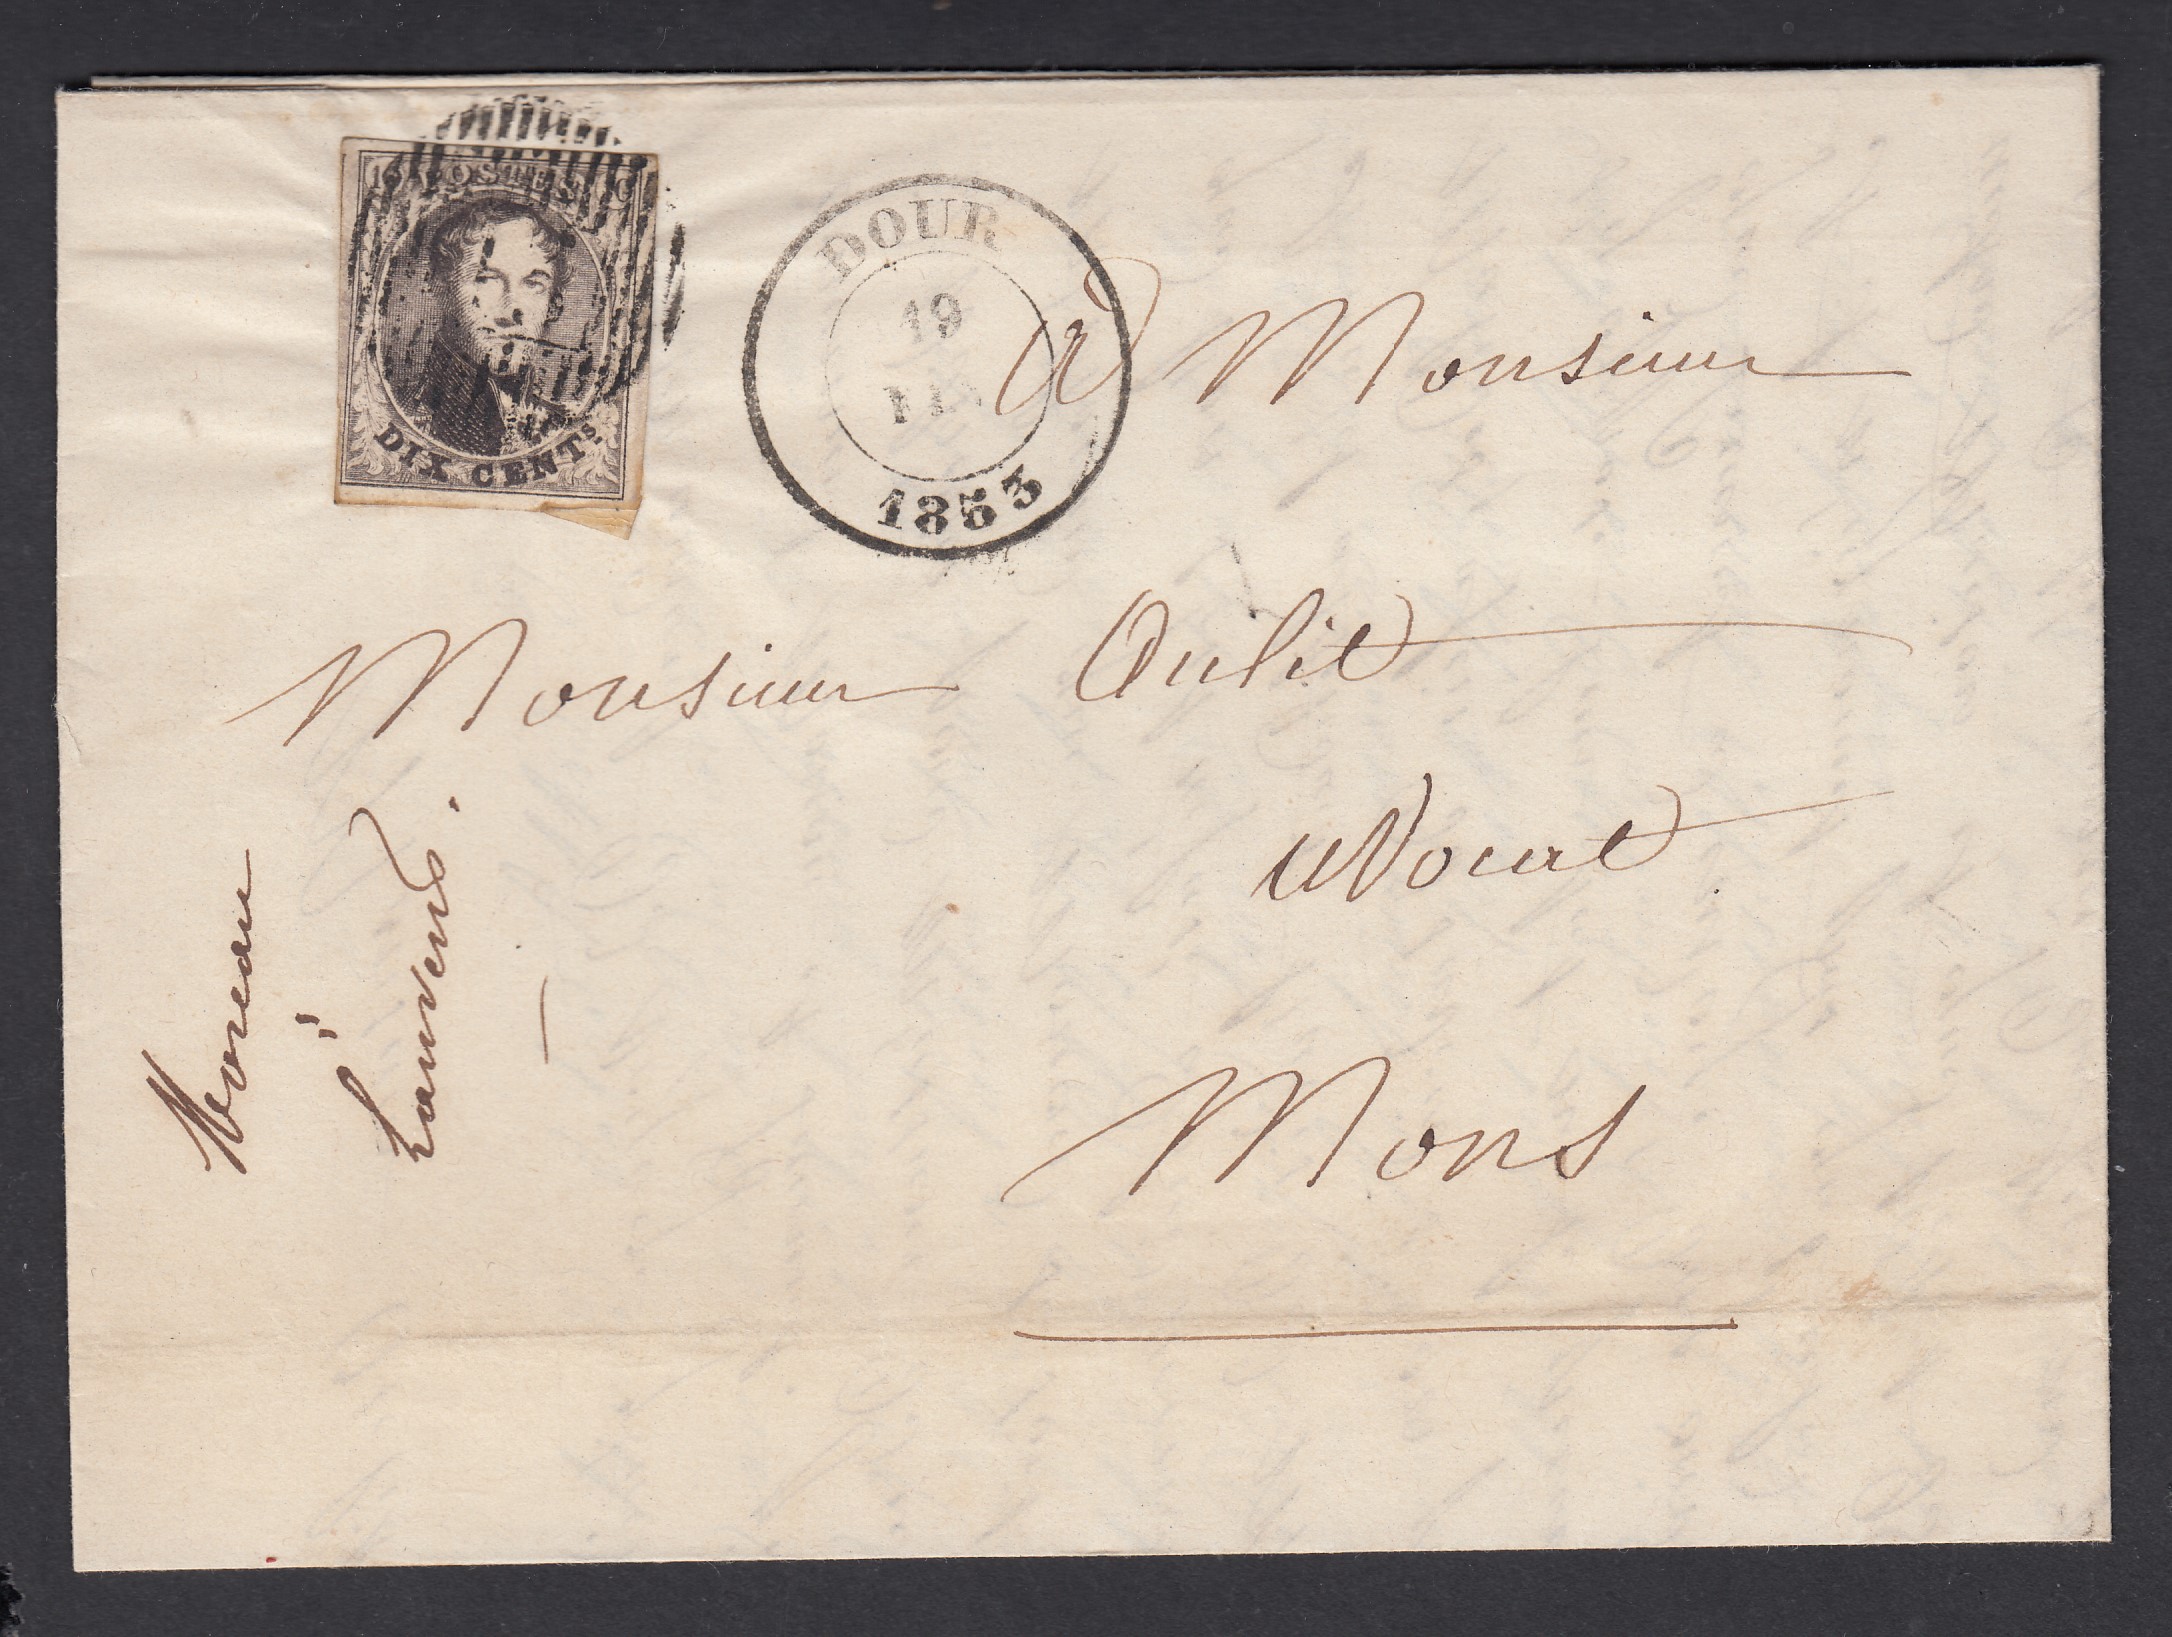 10 POSTES 10
DIX CENTS.
DOUR
19
1853
A Monsieur
Monsieur
avocat
Mons
Moreau
à